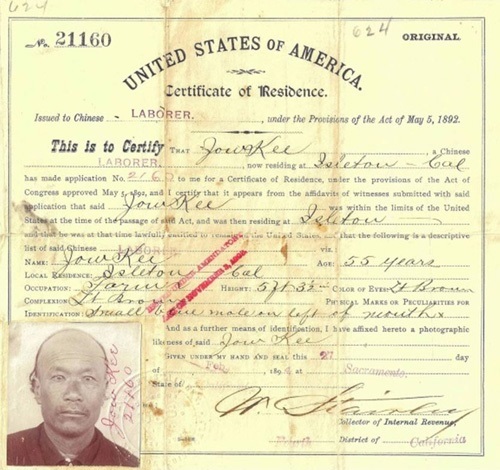 624
624
No. 21160
ORIGINAL.
UNITED STATES OF AMERICA.
Certificate of Residence.
Issued to Chinese LABORER. , under the Provisions of the Act of May 5, 1892.
This is to Certify THAT Jow Kee , a Chinese
LABORER. , now residing at Isleton - Cal
has made application No. 2160 to me for a Certificate of Residence, under the provisions of the Act of
Congress approved May 5, 1892, and I certify that it appears from the affidavits of witnesses submitted with said
application that said Jow Kee was within the limits of the United
States at the time of the passage of said Act, and was then residing at Isleton
and that he was at that time lawfully entitled to remain in the United States, and that the following is a descriptive
list of said Chinese LABORER viz.
NAME: Jow Kee AGE: 55 years
LOCAL RESIDENCE: Isleton Cal
OCCUPATION: Farmer HEIGHT: 5 ft COLOR OF EYES: Lt Brown
COMPLEXION: Lt Brown PHYSICAL MARKS OR PECULIARITIES FOR
IDENTIFICATION: Small blue mole on left of mouth
And as a further means of identification, I have affixed hereto a photographic
likeness of said Jow Kee
GIVEN UNDER MY HAND AND SEAL this day
of 189 at Sacramento,
State of
NOVEMBER 3, 1893.
Jow Kee
21160
Collector of Internal Revenue,
Fourth District of California